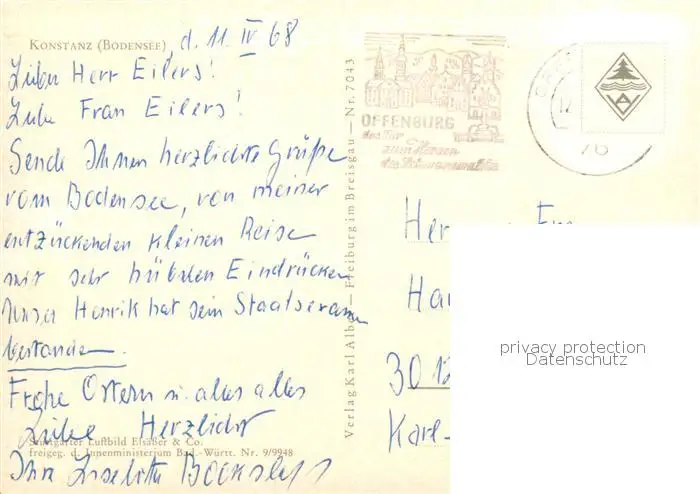 KONSTANZ (BODENSEE), d. 11. IV 68
Lieber Herr Eilers!
Liebe Frau Eilers!
Sende Ihnen herzlichste Grüße
vom Bodensee, von meiner
entzückenden kleinen Reise
mit sehr hübschen Eindrücken
Unser Henrik hat sein Staatsexamen
bestanden.
Frohe Ostern u. alles alles
Liebe Herzlichst
Ihre Liselotte
Stuttgarter Luftbild Elsäßer & Co.
freigeg. d. Innenministerium Bad.-Württ. Nr. 9/9948
Verlag Karl Alber — Freiburg im Breisgau — Nr. 7043
OFFENBURG
das Tor
zum Herzen
des Schwarzwaldes
76
Her
Ha
30 12
Karl-
privacy protection
Datenschutz